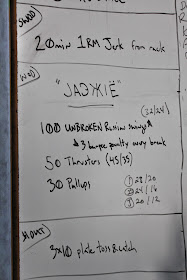 SWOD
20min 1RM Jerk from rack
WOD
"JADЖIË"
(32/24)
100 UNBROKEN Russian Swings *
* 3 burpee penalty every break
50 Thrusters (45/35)
30 Pullups
① 28/20
② 24/16
③ 20/12
H.OUT
3x10 plate toss & catch